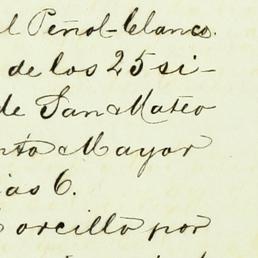 l Peñol-blanco.
de los 25 si-
de San Mateo
nto Mayor
ias 6.
orcillo por